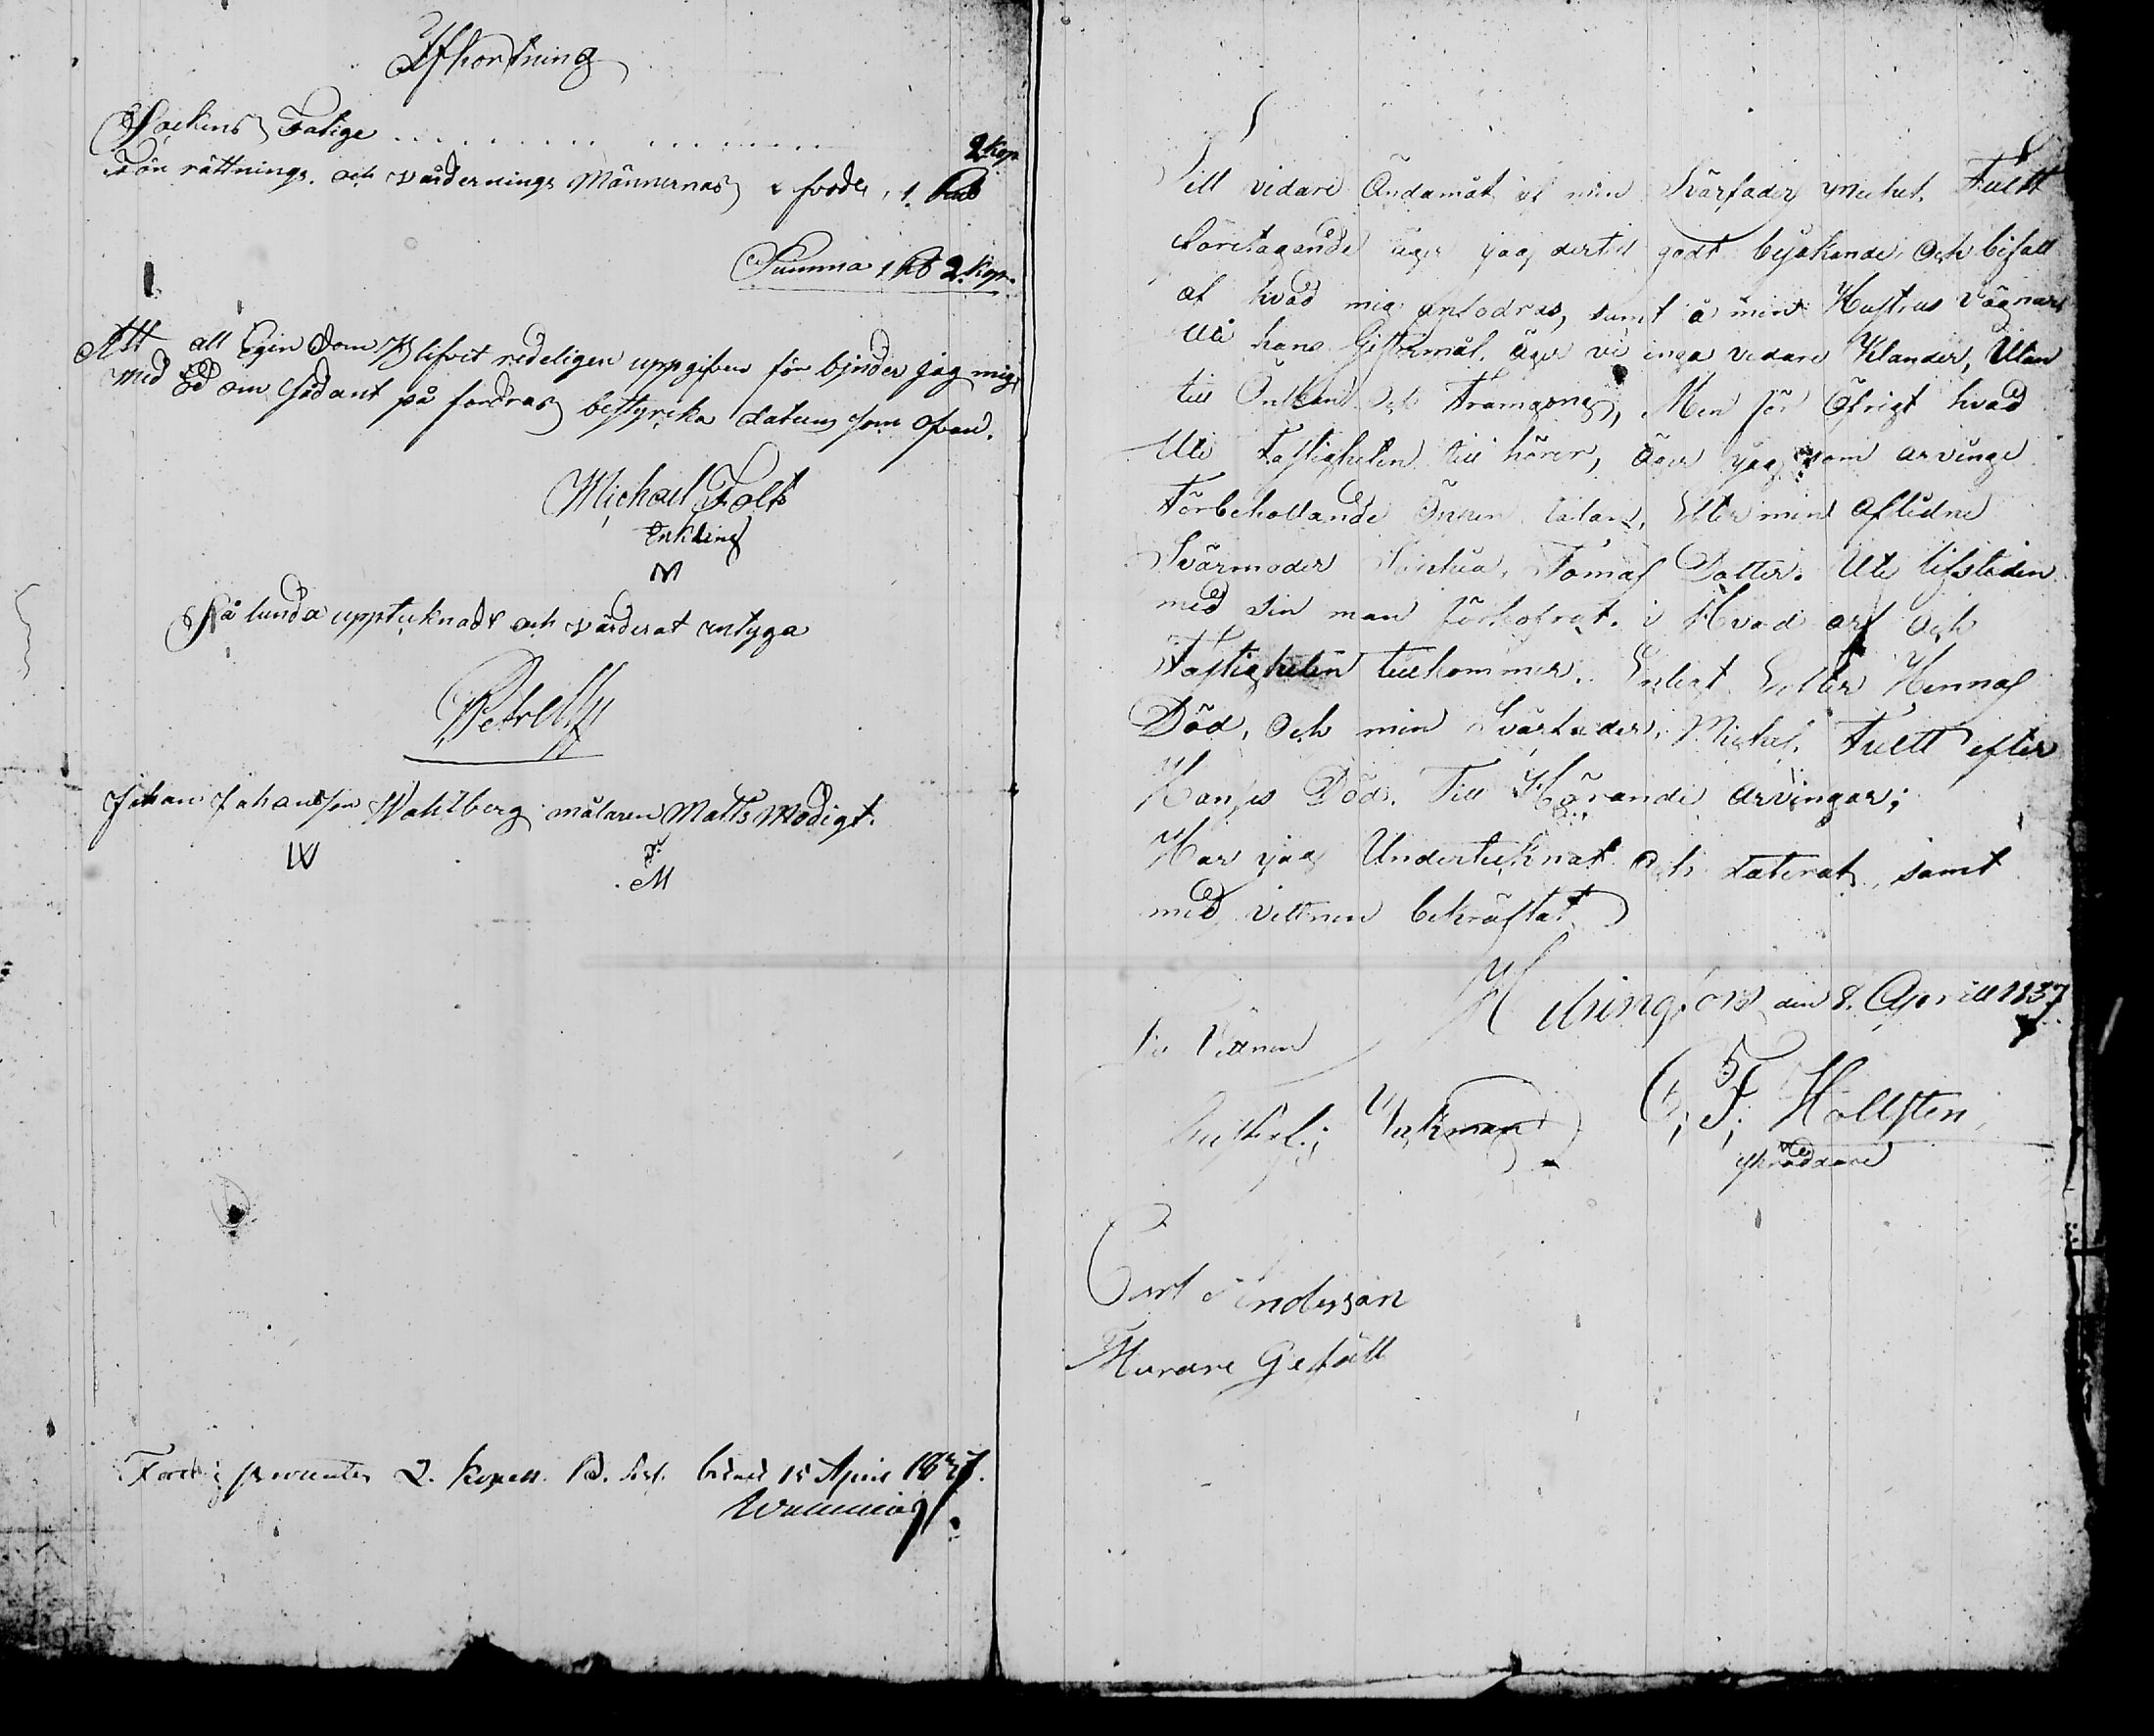 Afkortning
Sockens Fatige . . . . . . . . . . . . . . 2 Kop
För rättnings och värderings Männernas 1. Rub
Summa 1 Rb 2 Kop.
Att all Egendom Blifvit redeligen uppgifven för binder jag mig
med Ed om sådant på fordras bestyrcka datum som ofvan.
Michael Folt
Enkling
M
Så lunda upptecknadt och värderat intyga
Petrell
Johan Johansson Wahlberg målaren Matts Modigt.
W
M
2. Kopek 15 April 1837.
Till vidare Ändamåt af min Svärfader Michel. Fuelt
Företagande äger jaag dertil godt bejakande och bifall
af hvad mig anfodras, samt å min Hustrus Vägnar
Uti hans Giftermål. Äger vi inga vidare Klander, Utan
till Önskan och Framgång, Men för Öfrigt hvad
Uti Fastigheten till hörer, Äger jaag som arvinge
Förbehollande Öppen talan, Efter min Aflidne
Svärmoder Tomas Dotter. Uti lifstiden
med sin man förkofrat. i Hvad arf och
Fastigheten tillkommer. Efter Hennas
Död, och min Svärfader Michel. Fuelt efter
Hanses Död. Till Hörande Arvingar;
Har jaag Undertecknat och daterat, samt
med vittnen bekräftat
Helsingfors den 8. Aprill 1837
Till Vittnen
C; F; Hollsten
skräddare
Carl Anderson
Murare Gesäll